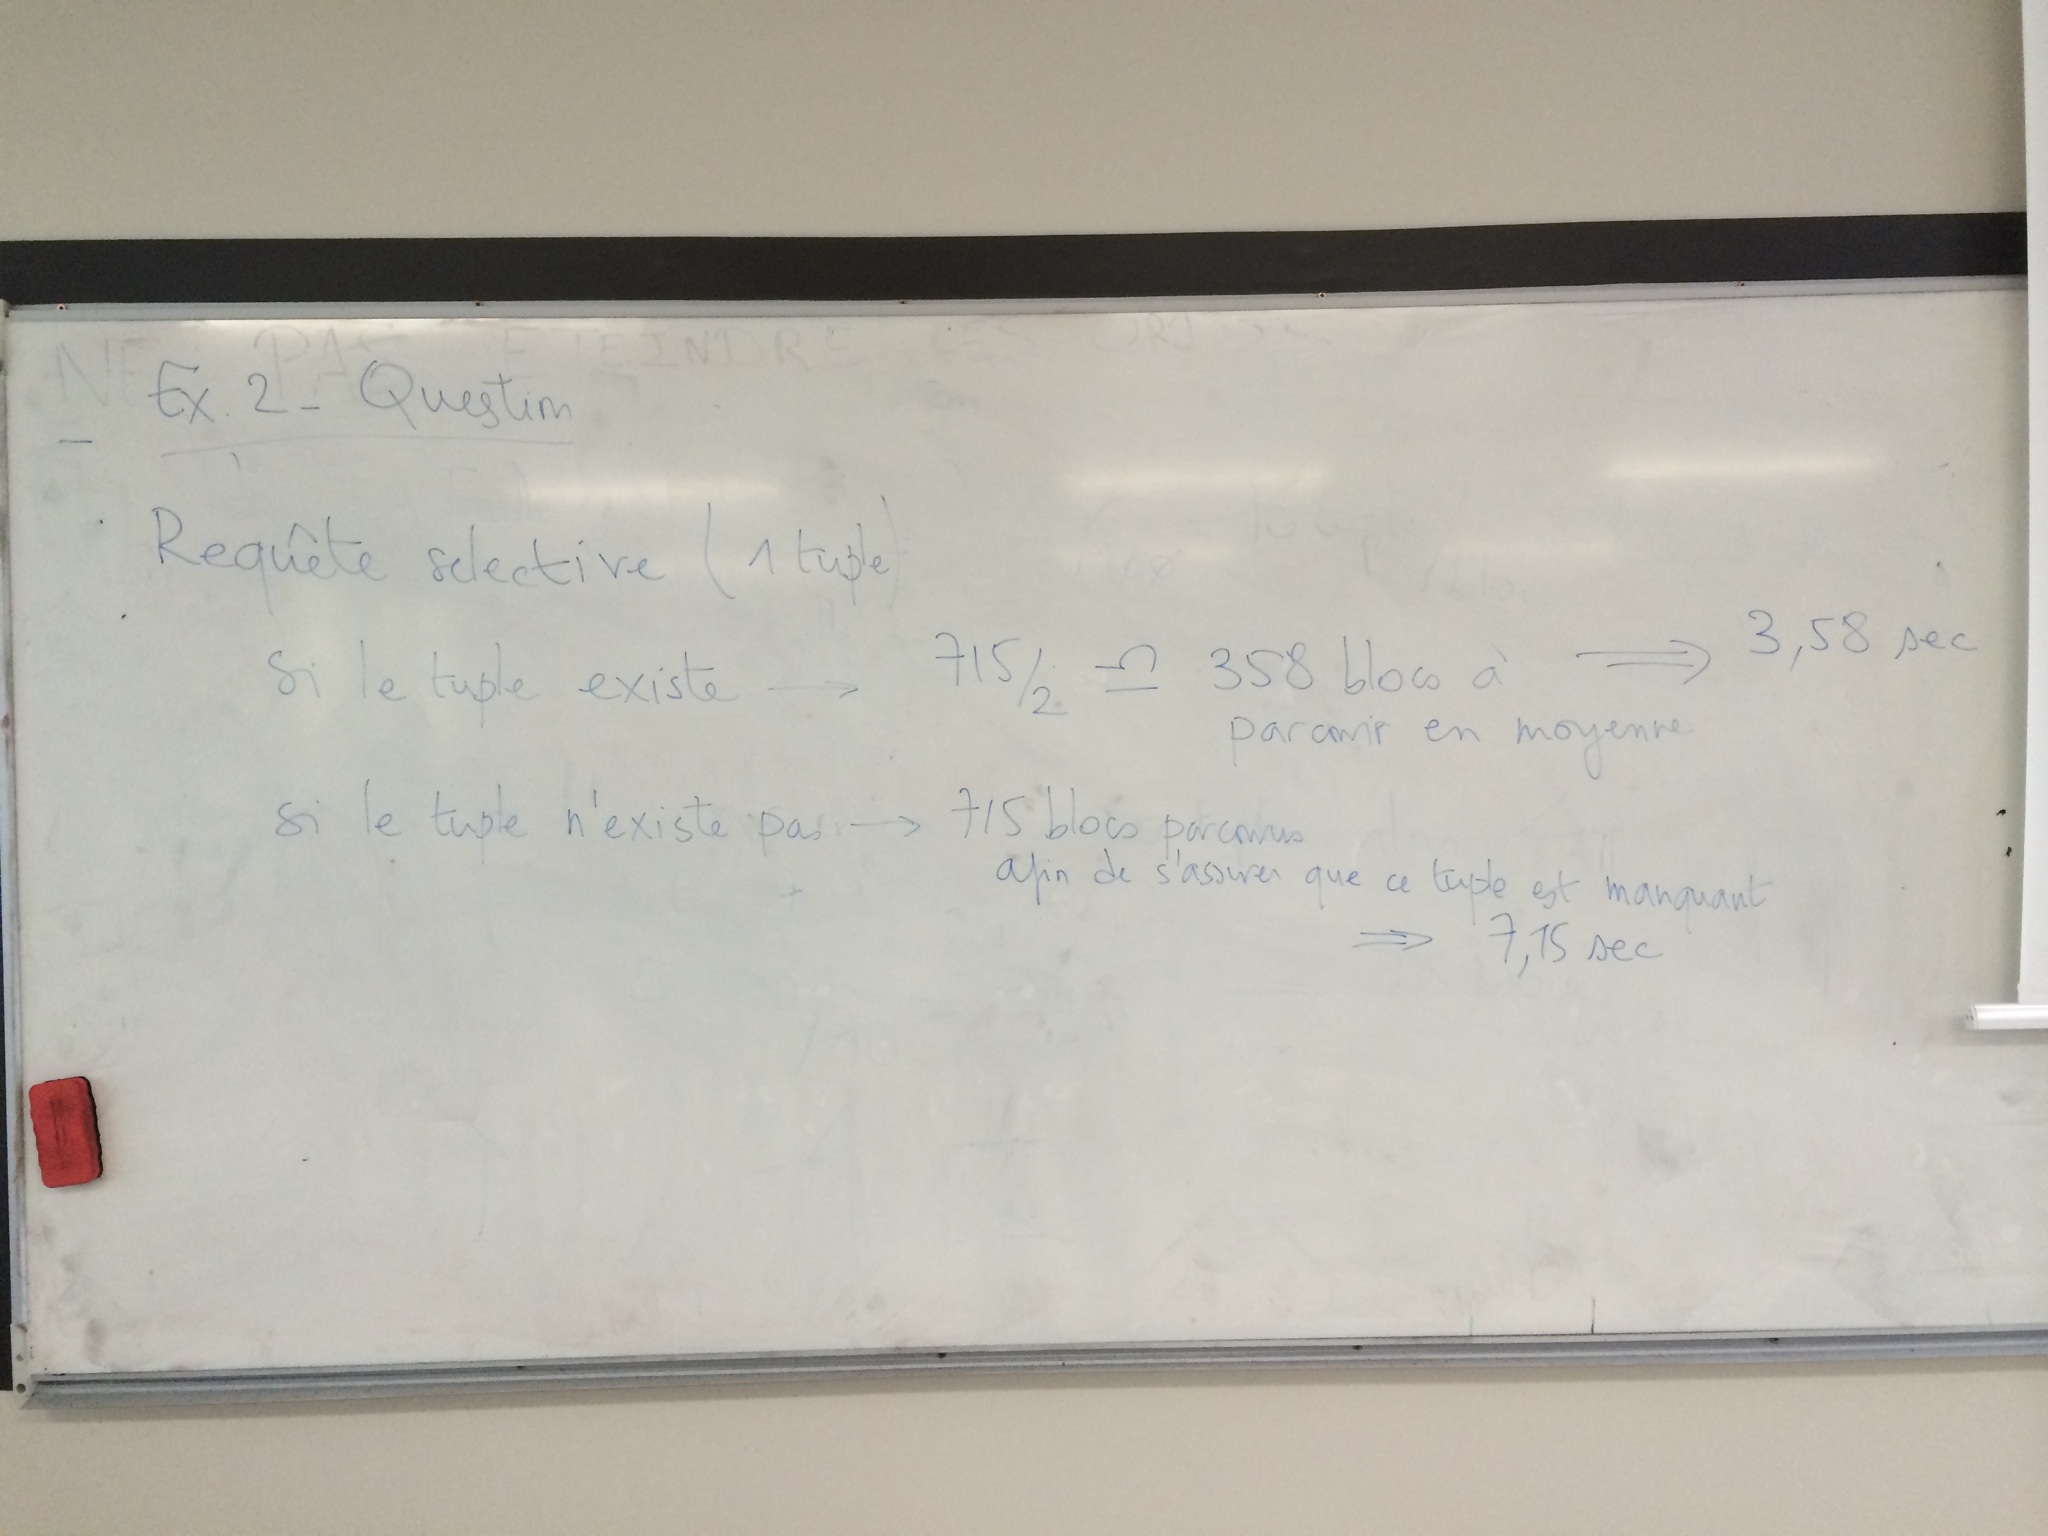 NE PAS ETEINDRE
Ex. 2 - Question
Requête selective (1 tuple)
si le tuple existe → 715/2 ≃ 358 blocs à ⟹ 3,58 sec
parcourir en moyenne
si le tuple n'existe pas → 715 blocs parcourus
afin de s'assurer que ce tuple est manquant
⟹ 7,15 sec